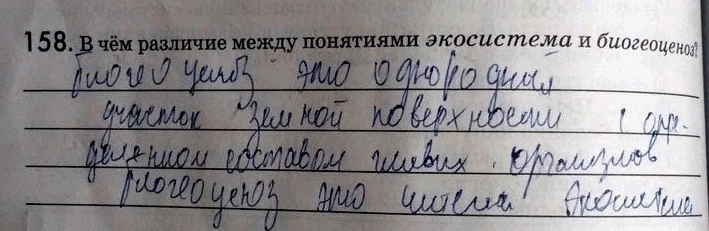 158. В чём различие между понятиями экосистема и биогеоценоз?
биогеоценоз это однородный
участок земной поверхности с опре-
деленном составом живых организмов
биогеоценоз это